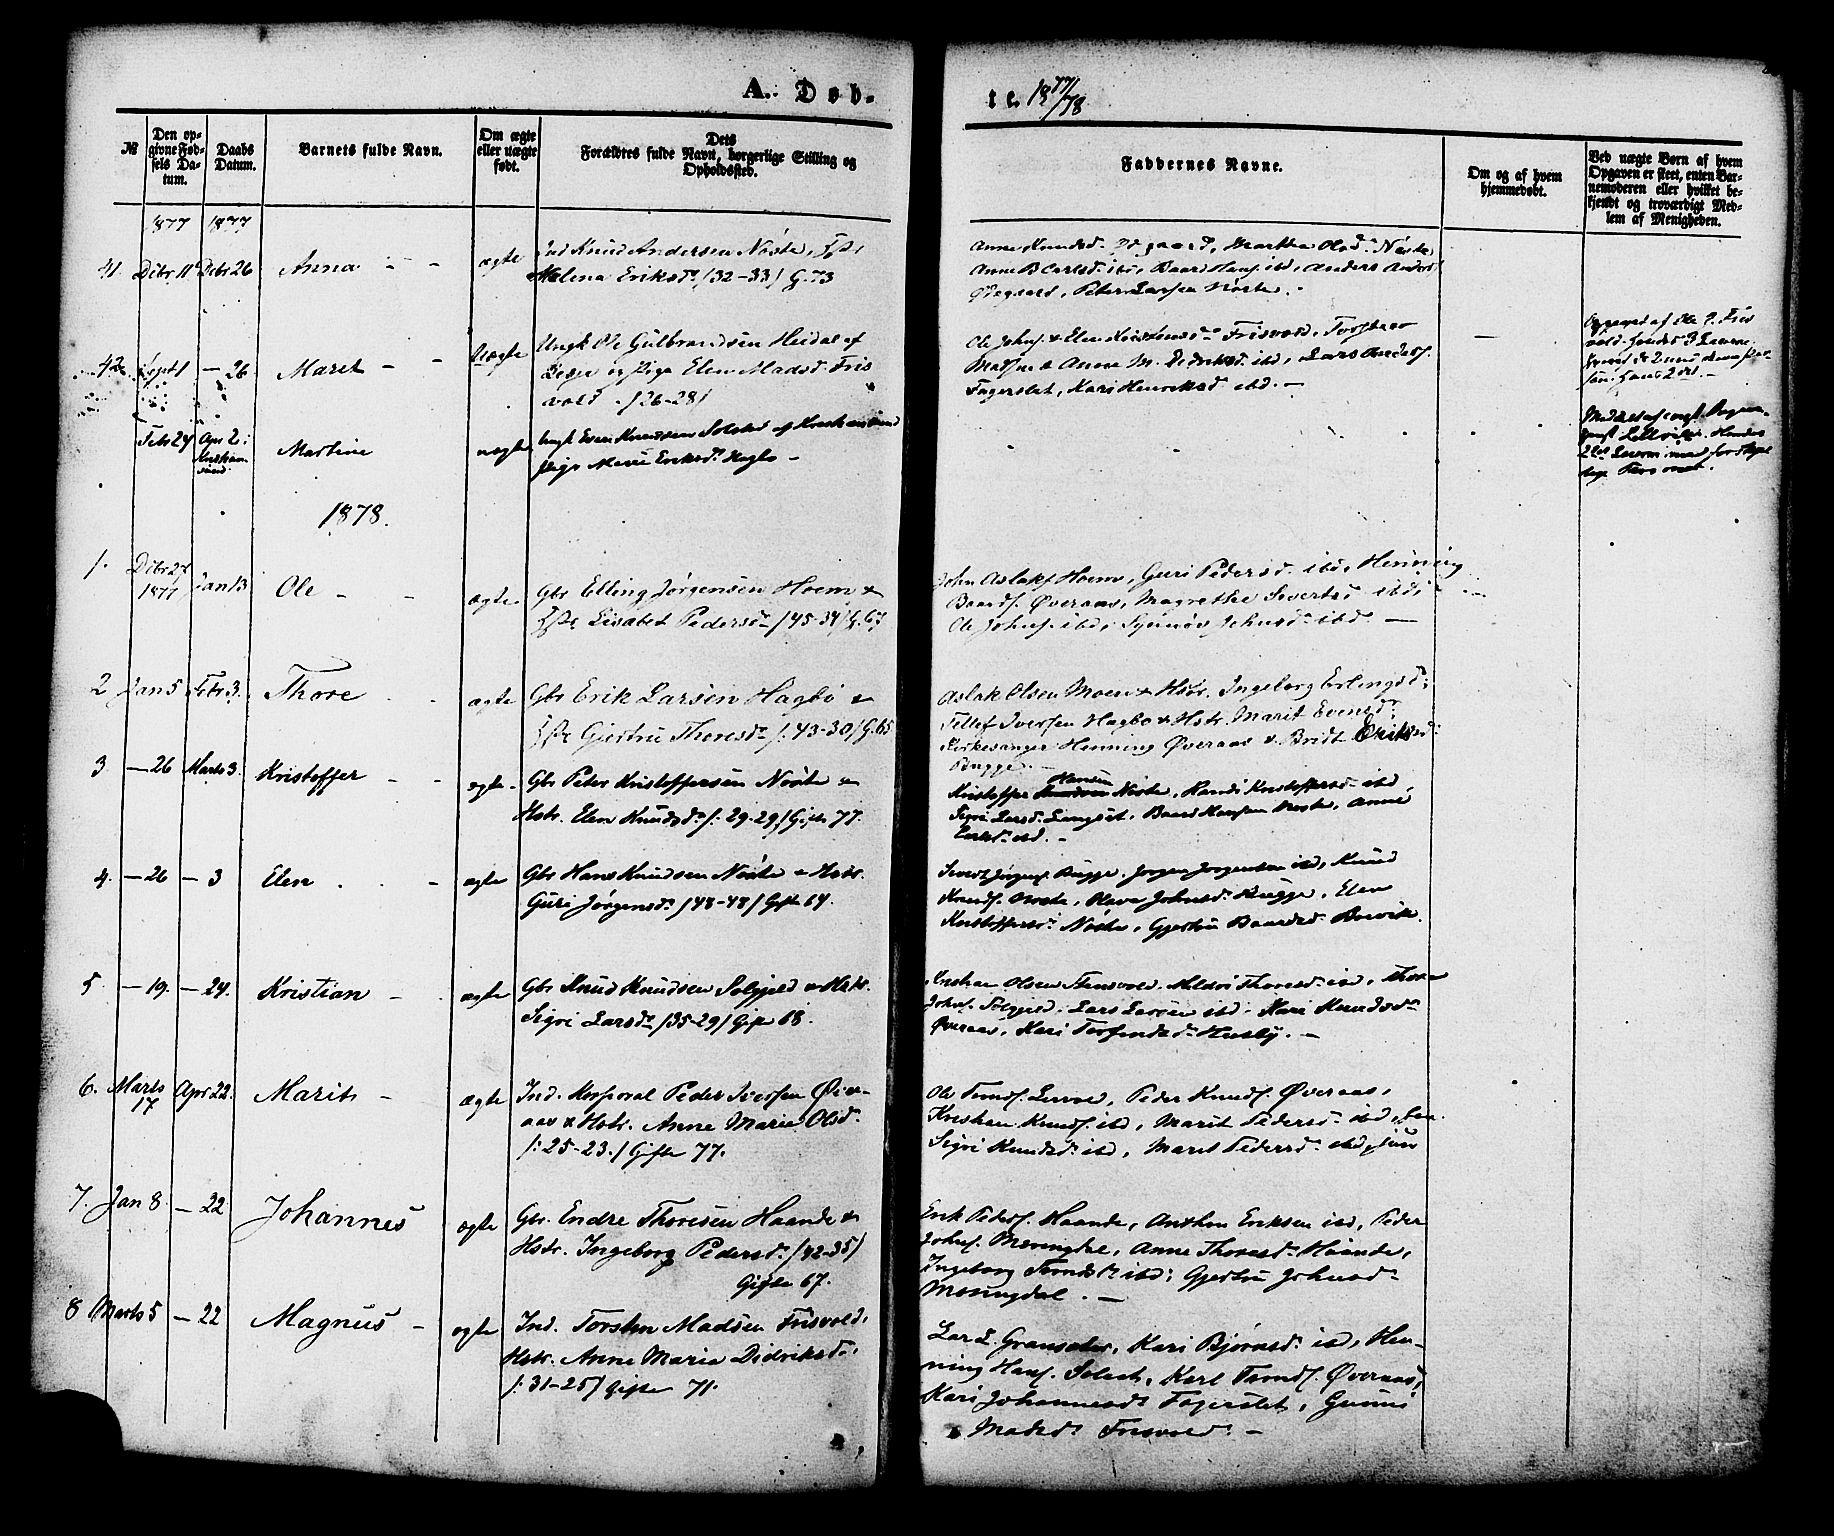 A. Døb-
te. 18 77/78
№
Den op-
givne Fød-
sels Da-
tum.
Daabs
Datum.
Barnets fulde Navn.
Om ægte
eller uægte
født.
Dets
Forældres fulde Navn, borgerlige Stilling og
Opholdssted.
Faddernes Navne.
Om og af hvem
hjemmedøbt.
Ved uægte Børn af hvem
Opgaven er skeet, enten Bar-
nemoderen eller hvilket be-
kjendt og troværdigt Med-
lem af Menigheden.
1877 1877
41. Dcbr 11 Dcbr 26 Anna - - ægte
Ind Knud Andersen Nøste,
Malena Eriksd. /32-33/ G. 73
Anne Knudsd. Martha Olsd. Nøste
Anne B Carlsd. ibd, Baard Hansf. ibd, Anders Anders
Ødegaard, Peter Larsen Nøste.
42. Sept 1 - 26 Maret - Uægte
Ungk Ole Gulbrandsen Heidal af
Pige Elen Madsd. Fris
vold. /26-28/
Ole Johnf. & Elen Kristensd. Frisvold, Torsten
Madsen & Anne M. Didriksd. ibd, Lars Andersf.
Fagerslet, Kari Henriksd. ibd. -
Febr 24 Apr 2: Martine uægte
Ungk Even Knudsen Solstad af Kristiansund
Pige Marie Eriksd. Hagbø -
1878.
1. Dcbr 27
1877 Jan 13 Ole - - ægte.
Gbr Elling Jørgensen Hoem &
Lisabet Pedersd. /45-34/ G. 67
John Aslakf. Hoem, Guri Pedersd. ibd, Henning
Baardf. Øveraas, Magrethe Sivertsd. ibd,
Ole Johnf. ibd, Synnøv Johnsd. ibd -
2 Jan 5 Febr 3. Thore - - ægte
Gbr Erik Larsen Hagbø &
Gjertru Thoresd. /: 43-30/ G. 65
Aslak Olsen Moen & Hstr. Ingeborg Erlingsd.
Tellef Iversen Hagbø & Hstr. Marit Evensd.
Kirkesanger Henning Øveraas & Bridt Eriksd.
Bugge. -
3 - 26 Marts 3. Kristoffer - - ægte.
Gbr Peter Kristoffersen Nøste &
Hstr. Elen Knudsd. /: 29-29/ Gifte 77.
Hansen
Kristoffer Nøste, Randi Kristoffersd. ibd
Sigri Larsd. Langset, Baard Hansen Nøste, Anne
Eriksd. ibd. -
4. - 26 - 3 Elen - ægte
Gbr Hans Knudsen Nøste & Hstr.
Guri Jørgensd. /48-48/ Gifte 64.
Sivert Jørgenf. Bugge, Jørgen Jørgensen ibd, Knud
Knudf. Nøste, Olava Johnsd. Bugge, Elen
Kristoffersd. Nøste, Gjertru Baardsd. Boevik.
5 - 19. - 24. Kristian - ægte
Gbr Knud Knudsen Solgjeld & Hstr.
Sigri Larsd. /35-29/ Gifte 68.
Kristian Olsen Stensvold, Mildri Thoresd. ibd, Thore
Johnf. Solgjeld, Lars Larsen ibd, Kari Knudsd.
Øveraas, Kari Torfinsd. Husby. -
6. Marts
17 Apr 22. Marit - ægte
Ind. Korporal Peder Iversen Øver-
aas & Hstr. Anne Marie Olsd.
/: 25-23./ Gifte 77.
Ole Trondf. Lervoe, Peder Knudf. Øveraas,
Kristian Knudf. ibd, Marit Pedersd. ibd,
Sigri Knudsd. ibd, Maret Pedersd. ibd,
7. Jan 8. - 22 Johannes ægte
Gbr. Endre Thoresen Haande &
Hstr. Ingeborg Pedersd. /42-35/
Gifte 67.
Erik Pedersf. Haande, Anthon Eriksen ibd, Peder
Johnf. Meringdal, Anne Thoresd. Haande,
Ingeborg Trondsd. ibd, Gjertru Johnsd.
Meringdal. -
8 Marts 5 - 22 Magnus - ægte
Ind. Torsten Madsen Frisvold,
Hstr. Anne Maria Didriksd.
/: 31-25/ Gifte 71.
Lars L. Gransæter, Kari Bjørnsd. ibd, Hen-
ning Hansf. Solset, Karl Trondf. Øveraas,
Kari Johannesd. Fagerslet, Gunni
Madsd. Frisvold. -